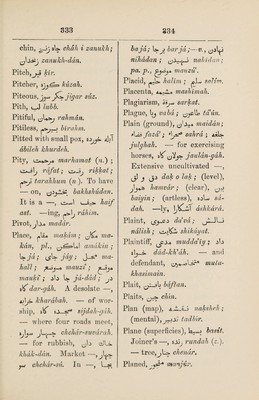 333
chin, چاه زنخ chāh i zanukh;
زنخدان zanukh-dān.
Pitch, قیر ḳīr.
Pitcher, کوزه kūzah.
Piteous, جگر سوز jigar sūz.
Pith, لب labb.
Pitiful, رحمان raḥmān.
Pitiless, بیرحم bīraḥm.
Pitted with small pox, آبله خورده
ābileh khurdeh.
Pity, مرحمت marḥamat (a.) ;
رافت rifat ; رقت riḳḳat;
ترحم tarahhum (n.) To have
— on, بخشودن bakhshūdan.
It is a —, حیف است ḥaif
ast. —ing, راحم rāḥim.
Pivot, مدار madār.
Place, مکان makān; مکان ma-
kān, pl., اماکن amākin ;
جا jā; جای jāy; محل ma-
hall ; موضع mauzi' ; موضع
mauẓi'; جا داد jā dād; در
گاه dar-gāh. A desolate —,
خرابه kharābah. — of wor-
ship, سجده گاه sijdah-gāh.
— where four roads meet,
چهار سواره chahār-suvārah.
— for rubbish, خاك دان
khāk-dān. Market —, چهار
سو chehār-sū. In —, بجا
234
ba jā; بر جا bar jā; — v., نهادن
nihādan ; نهیدن nahīdan ;
pa. p., موضوع mauzū'.
Placid, حلیم ḥalīm ; سلیم salīm.
Placenta, مشیمه mashīmah.
Plagiarism, سرقت sarḳat.
Plague, وبا vabā ; طاعون tā'ūn.
Plain (ground), میدان maidān;
فضا fazā'; صحرا saḥrā ; جلگه
julghah. — for exercising
horses, جولان گاه jaulān-gāh.
Extensive uncultivated —,
دق و لق daḳ o laḳ ; (level),
هموار hamvār ; (clear), بین
baiyin ; (artless), ساده sā-
dah. —ly, آشکارا āshkārā.
Plaint, دعوی da'vā ; نالش
nālish ; شکایت shikāyat.
Plaintiff, مدعی mudda'īy ; داد
خواه dād-khāh. — and
defendant, متخاصمین muta-
khasimain.
Plait, بافتن bāftan.
Plaits, چین chīn.
Plan (map), نقشه naḳshah ;
(mental), تدبیر tadbīr.
Plane (superficies), بسیط basīṭ.
Joiner's —, رنده rundah (s.).
— tree, چنار chenār.
Planed, منجور manjūr.